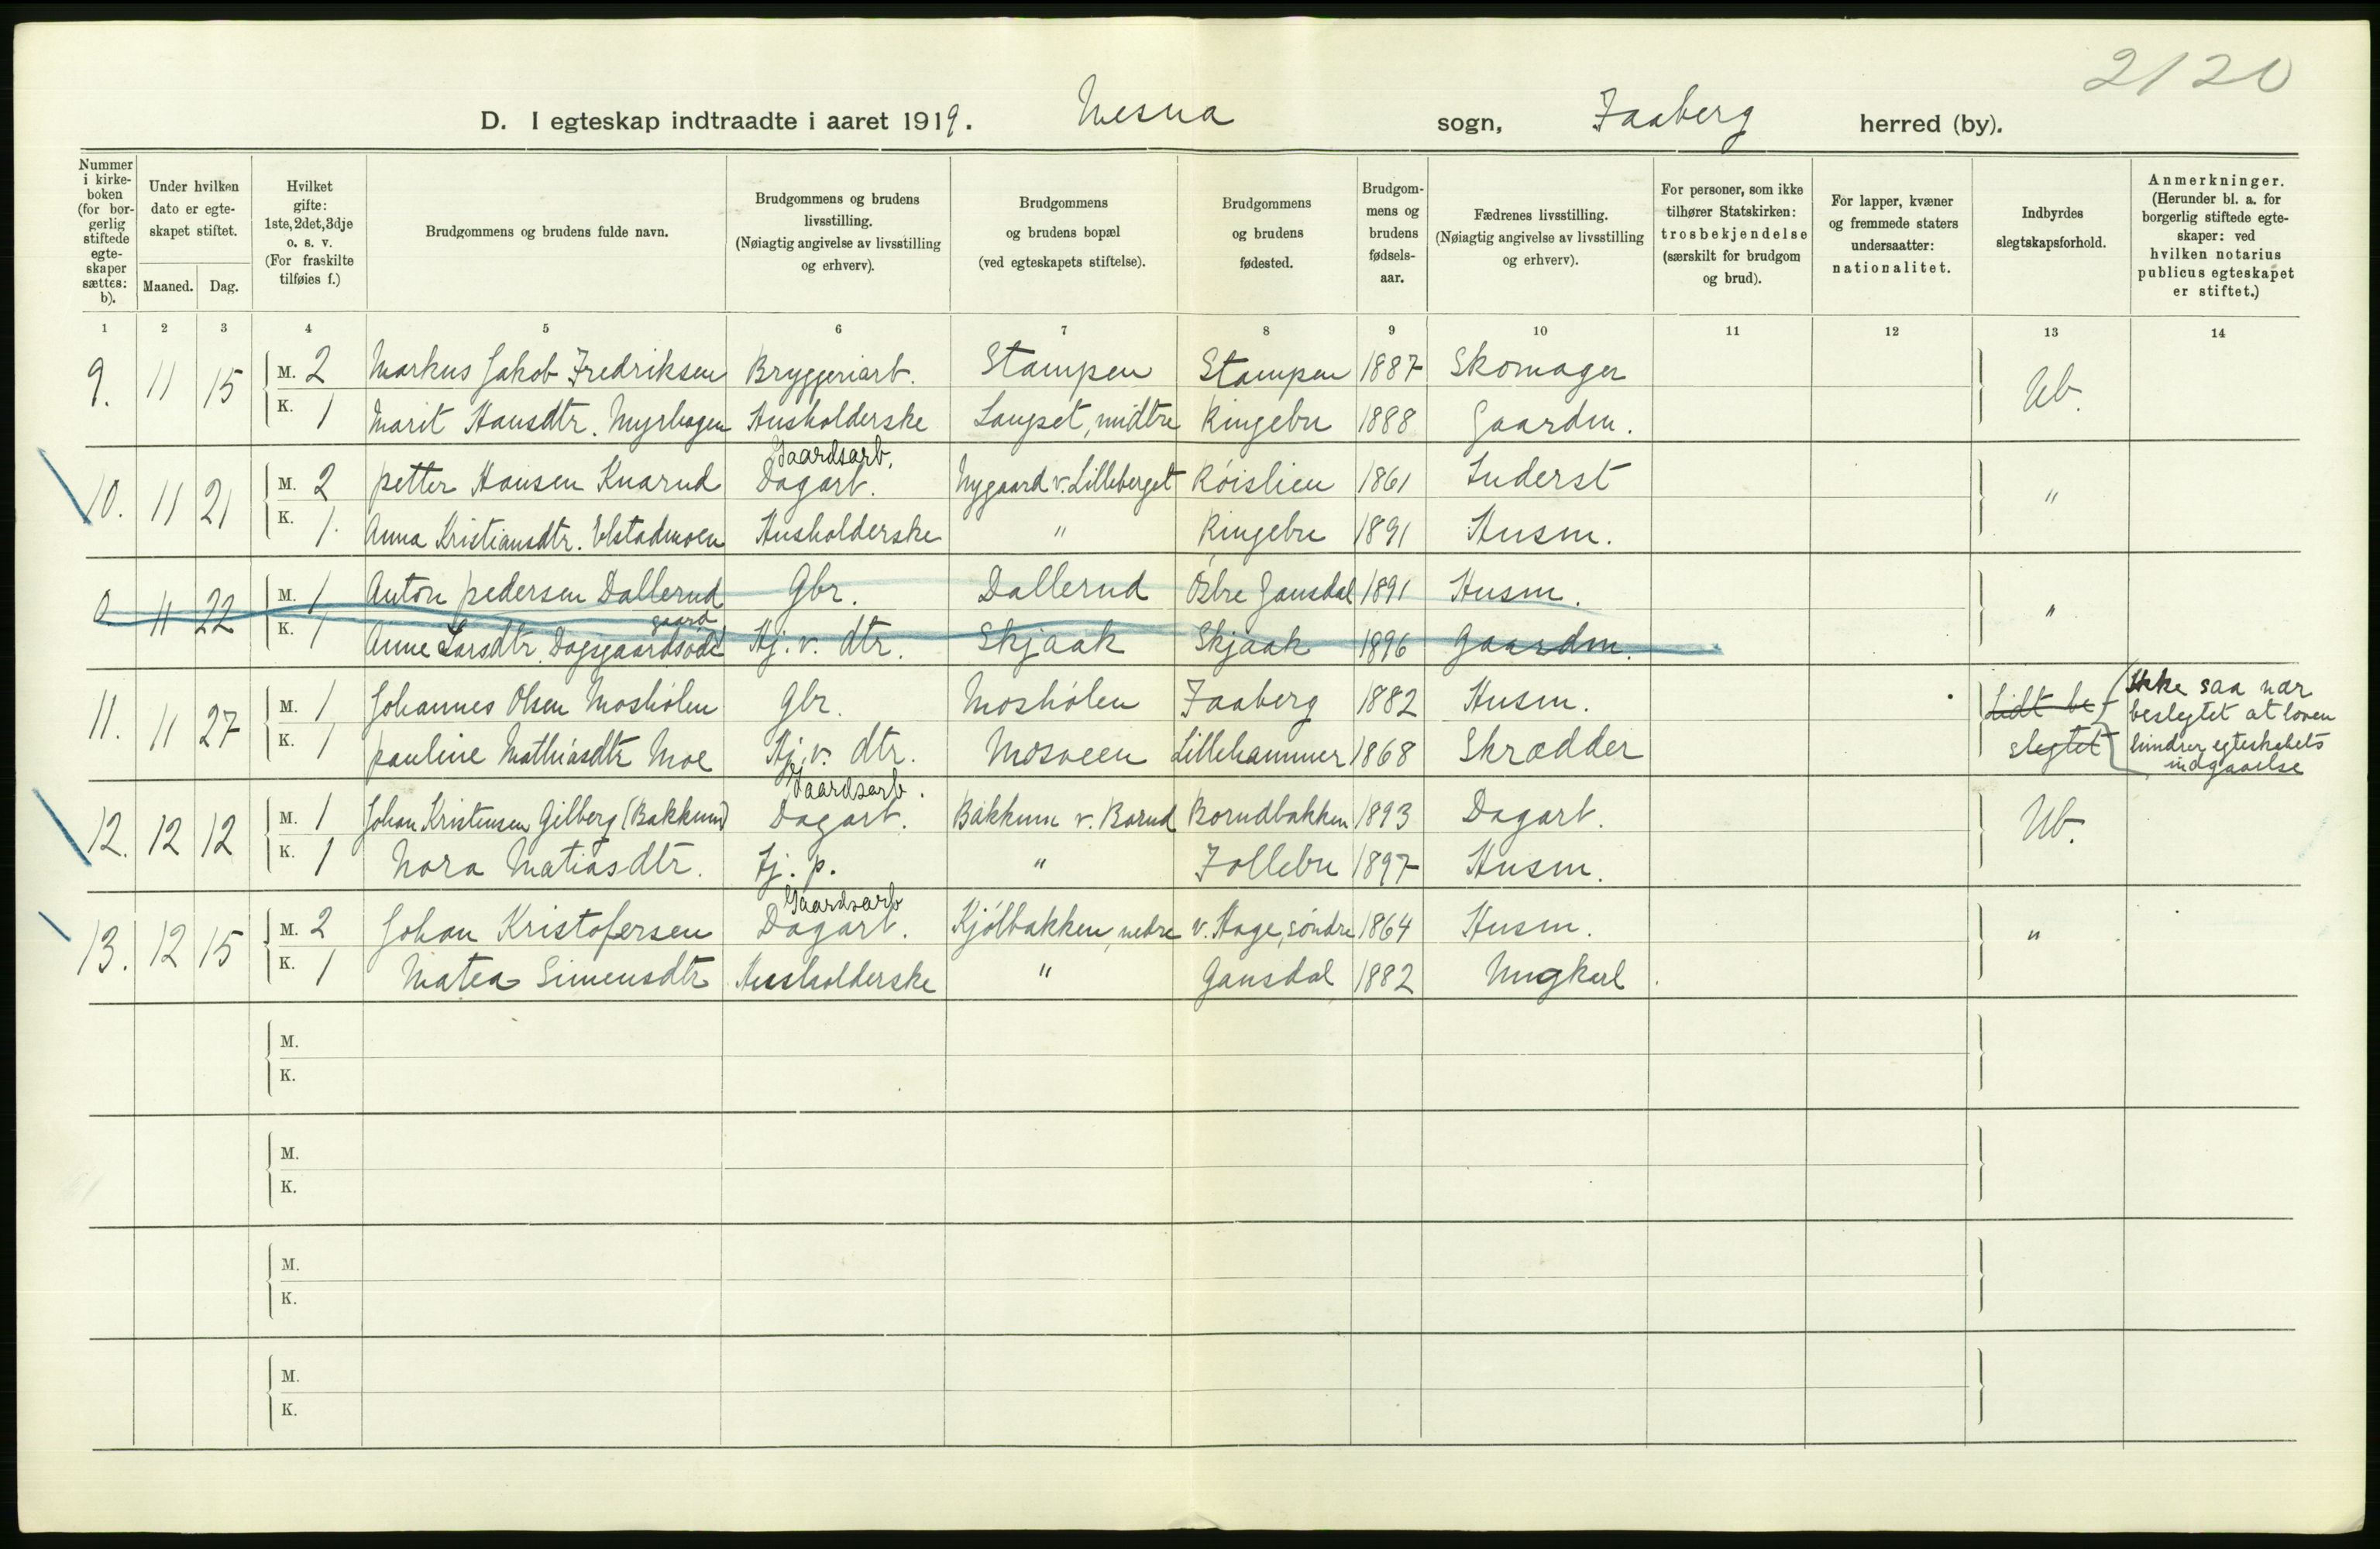 2120
D. I egteskap indtraadte i aaret 1919. Mesna sogn, Faaberg herred (by).
Nummer i kirke-boken (for bor-gerlig stiftede egte-skaper sættes: b).
Under hvilken dato er egte-skapet stiftet.
Maaned. Dag.
Hvilket gifte: 1ste, 2det, 3dje o. s. v. (For fraskilte tilføies f.)
Brudgommens og brudens fulde navn.
Brudgommens og brudens livsstilling. (Nøiagtig angivelse av livsstilling og erhverv).
Brudgommens og brudens bopæl (ved egteskapets stiftelse).
Brudgommens og brudens fødested.
Brudgom-mens og brudens fødsels-aar.
Fædrenes livsstilling. (Nøiagtig angivelse av livsstilling og erhverv).
For personer, som ikke tilhører Statskirken: trosbekjendelse (særskilt for brudgom og brud).
For lapper, kvæner og fremmede staters undersaatter: nationalitet.
Indbyrdes slegtskapsforhold.
Anmerkninger. (Herunder bl. a. for borgerlig stiftede egte-skaper: ved hvilken notarius publicus egteskapet er stiftet.)
1 2 3 4 5 6 7 8 9 10 11 12 13 14
9. 11 15 M. 2 Markus Jakob Fredriksen Bryggeriarb. Stampen Stampen 1887 Skomager Ub.
K. 1 Marit Hansdtr. Myrhagen Husholderske Laupset, midtre Ringebu 1888 Gaardm.
Gaardsarb.
10. 11 21 M. 2 Petter Hansen Knarud Dagarb. Nygaard v. Lilleberget Röislien 1861 Inderst "
K. 1. Anna Kristiansdtr. Elstadmoen Husholderske " Ringebu 1891 Husm.
0 11 22 M. 1 Anton Pedersen Dallerud Gbr. Dallerud Östre Gausdal 1891 Husm. "
gaard
K. 1 Anne Larsdtr. Dagsgaardsöde Hj. v. dtr. Skjaak Skjaak 1896 Gaardm.
11. 11 27 M. 1 Johannes Olsen Moshölen Gbr. Moshölen Faaberg 1882 Husm. Lidt be- Ikke saa nær beslegtet at loven
K. 1 Pauline Mathiasdtr Moe Hj. v. dtr. Mosveen Lillehammer 1868 Skrædder slegtet hindrer egteskabets indgaaelse
Gaardsarb.
12. 12 12 M. 1 Johan Kristensen Gilberg (Bakkum) Dagarb. Bakkum v. Borud Borudbakken 1893 Dagarb. Ub.
K. 1 Nora Matiasdtr. Tj. p. " Follebu 1897 Husm.
Gaardsarb
13. 12 15 M. 2 Johan Kristofersen Dagarb. Kjölbakken, nedre v. Hage, söndre 1864 Husm. "
K. 1 Matea Simensdtr Husholderske " Gausdal 1882 Ungkarl
M.
K.
M.
K.
M.
K.
M.
K.